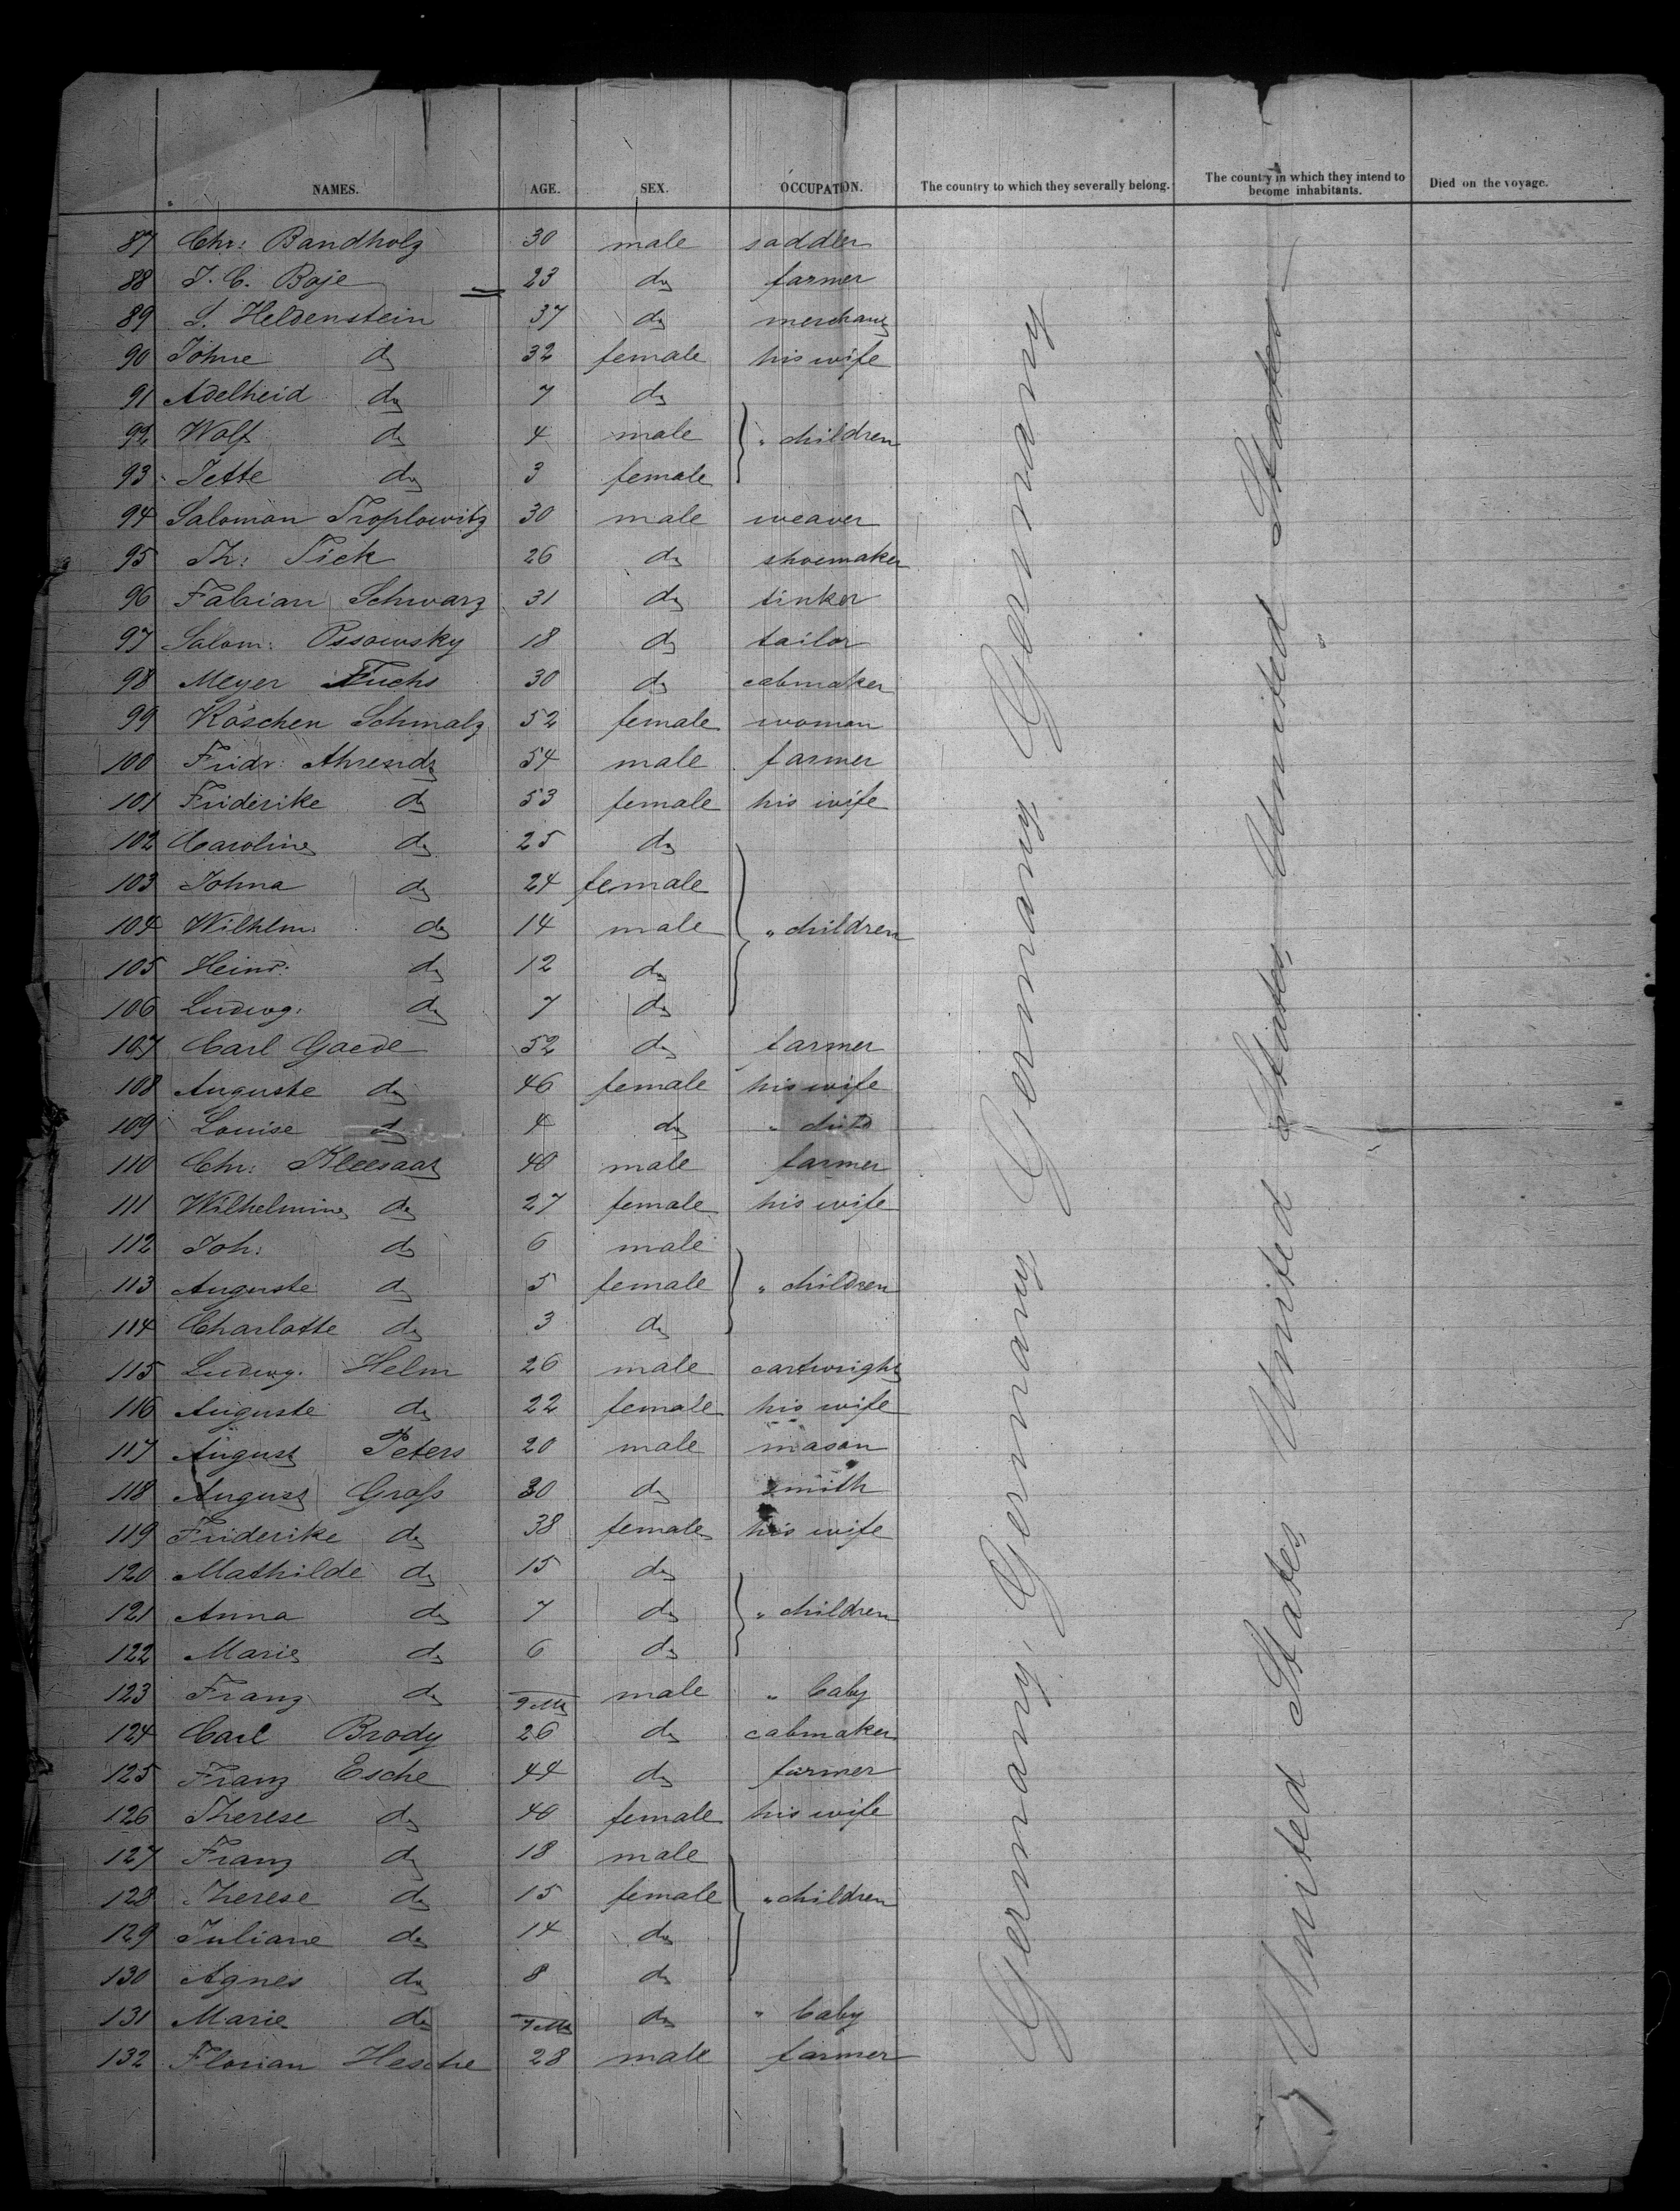 NAMES. AGE. SEX. OCCUPATION. The country to which they severally belong. The country in which they intend to become inhabitants. Died on the voyage.
87 Chr: Bandholz 30 male saddler
88 J. C. Boje 23 do farmer
89 S. Heldenstein 37 do merchant
90 Johne do 32 female his wife
91 Adelheid do 7 do
92 Wolf do 4 male " children
93 Jette do 3 female
94 Salomon Troplowitz 30 male weaver
95 Th: Tick 26 do shoemaker
96 Fabian Schwarz 31 do tinker
97 Salom: Ossowsky 18 do tailor
98 Meyer Fuchs 30 do cabmaker
99 Röschen Schmalz 52 female woman
100 Fridr: Ahrends 54 male farmer
101 Friderike do 53 female his wife
102 Caroline do 25 do
103 Johna do 24 female
104 Wilhlm: do 14 male " children
105 Heinr: do 12 do
106 Ludwg: do 7 do
107 Carl Gaede 52 do farmer
108 Auguste do 46 female his wife
109 Louise do 4 do " child
110 Chr: Kleesaat 40 male farmer
111 Wilhelmine do 27 female his wife
112 Joh: do 6 male
113 Auguste do 5 female " children
114 Charlotte do 3 do
115 Ludwg. Helm 26 male cartwright
116 Auguste do 22 female his wife
117 August Peters 20 male mason
118 August Groß 30 do smith
119 Friderike do 38 female his wife
120 Mathilde do 15 do
121 Anna do 7 do " children
122 Marie do 6 do
123 Franz do 9 Mt male " baby
124 Carl Brody 26 do cabmaker
125 Franz Esche 44 do farmer
126 Therese do 40 female his wife
127 Franz do 18 male
128 Therese do 15 female " children
129 Juliane do 14 do
130 Agnes do 8 do
131 Marie do 9 Mt do " baby
132 Florian Hesche 28 male farmer
Germany, Germany Germany Germany
United States United States United States